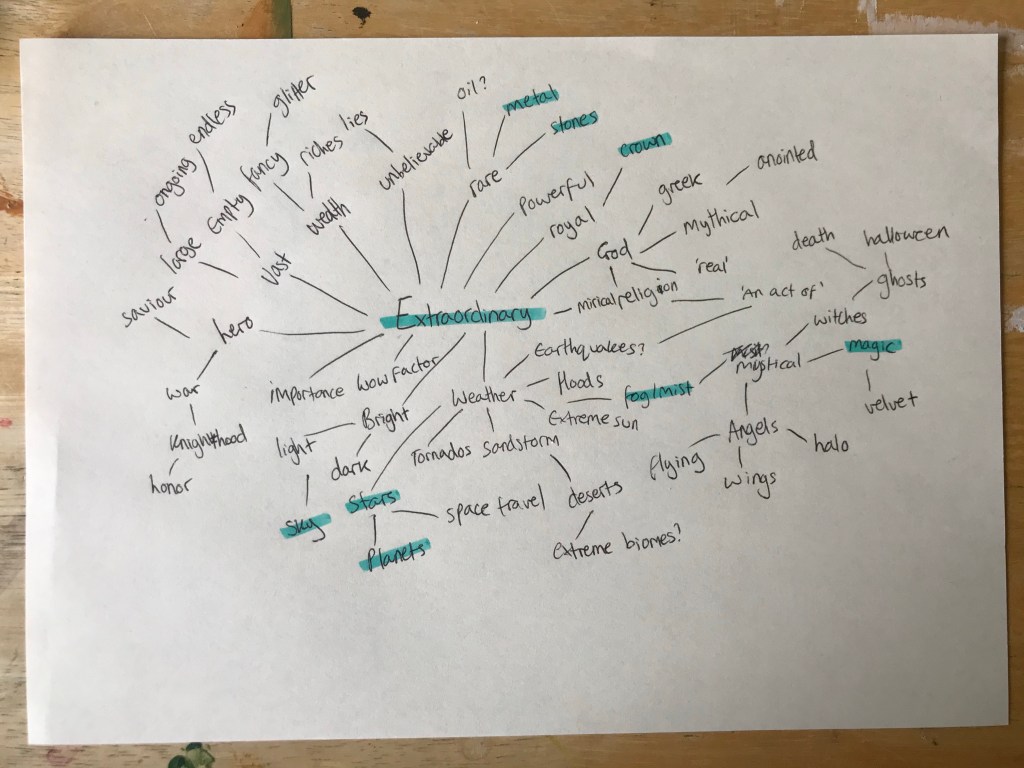 glitter
oil?
metal
endless
lies
stones
unbelievable
riches
crown
ongoing
fancy
rare
anointed
Powerful
greek
Empty
wealth
royal
Mythical
large
God
death
halloween
Vast
'real'
ghosts
saviour
religion
'An act of'
Extraordinary
witches
hero
Earthquakes?
magic
mystical
importance
Wow factor
floods
fog/mist
war
Weather
Extreme sun
velvet
Bright
Angels
Knighthood
light
Tornados
Sandstorm
halo
dark
flying
honor
wings
Stars
space travel
deserts
Sky
Planets
Extreme biomes?